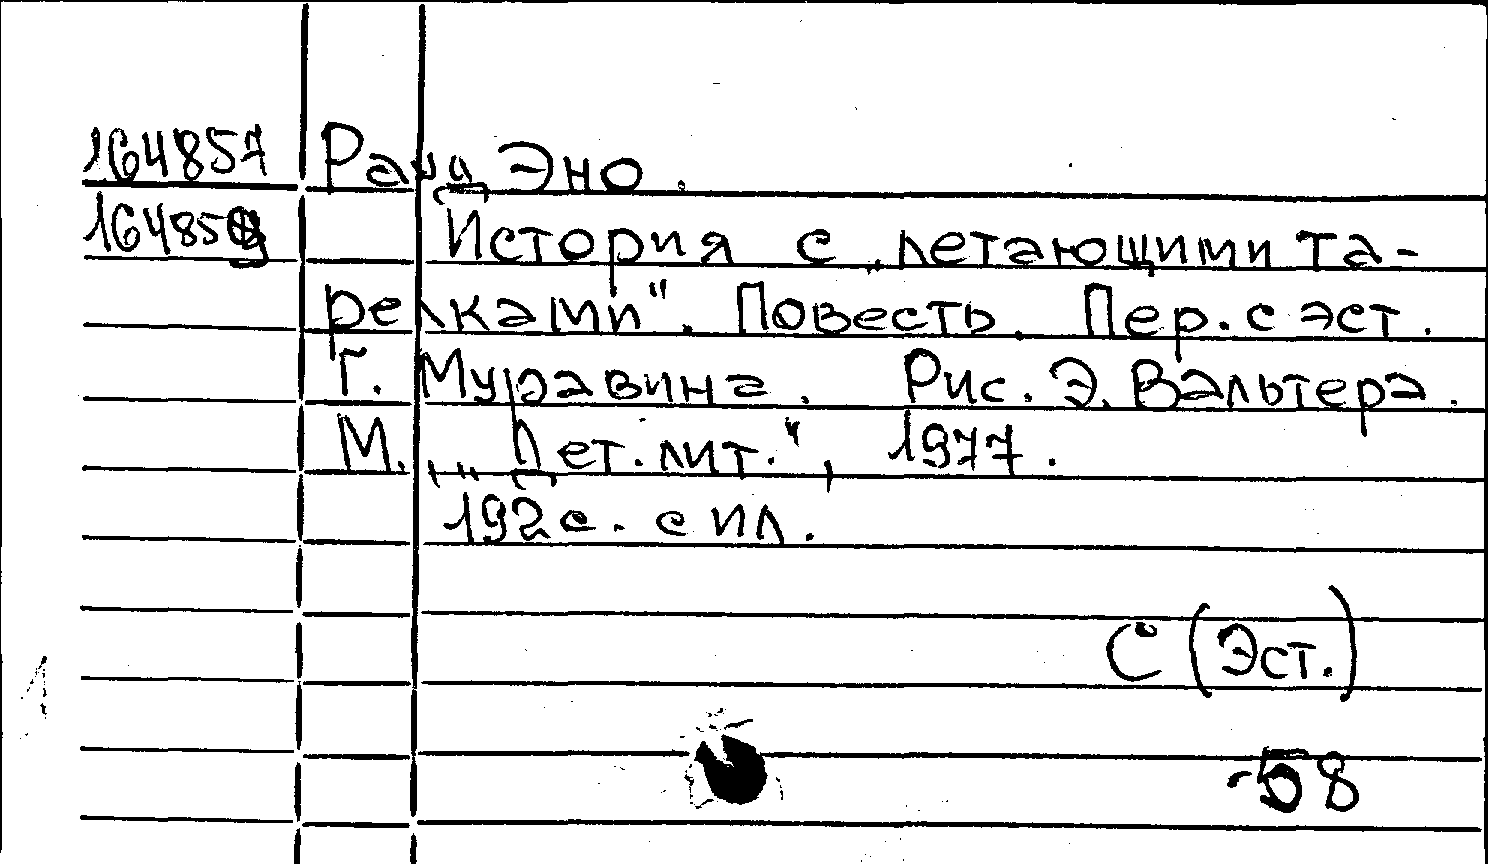 164857 Рауд Эно.
164859 История с „летающими та-
релками". Повесть. Пер. с эст.
Г. Муравина. Рис. Э. Вальтера.
М., „Дет. лит.", 1977.
192 с. с ил.
С (Эст.)
1
-58